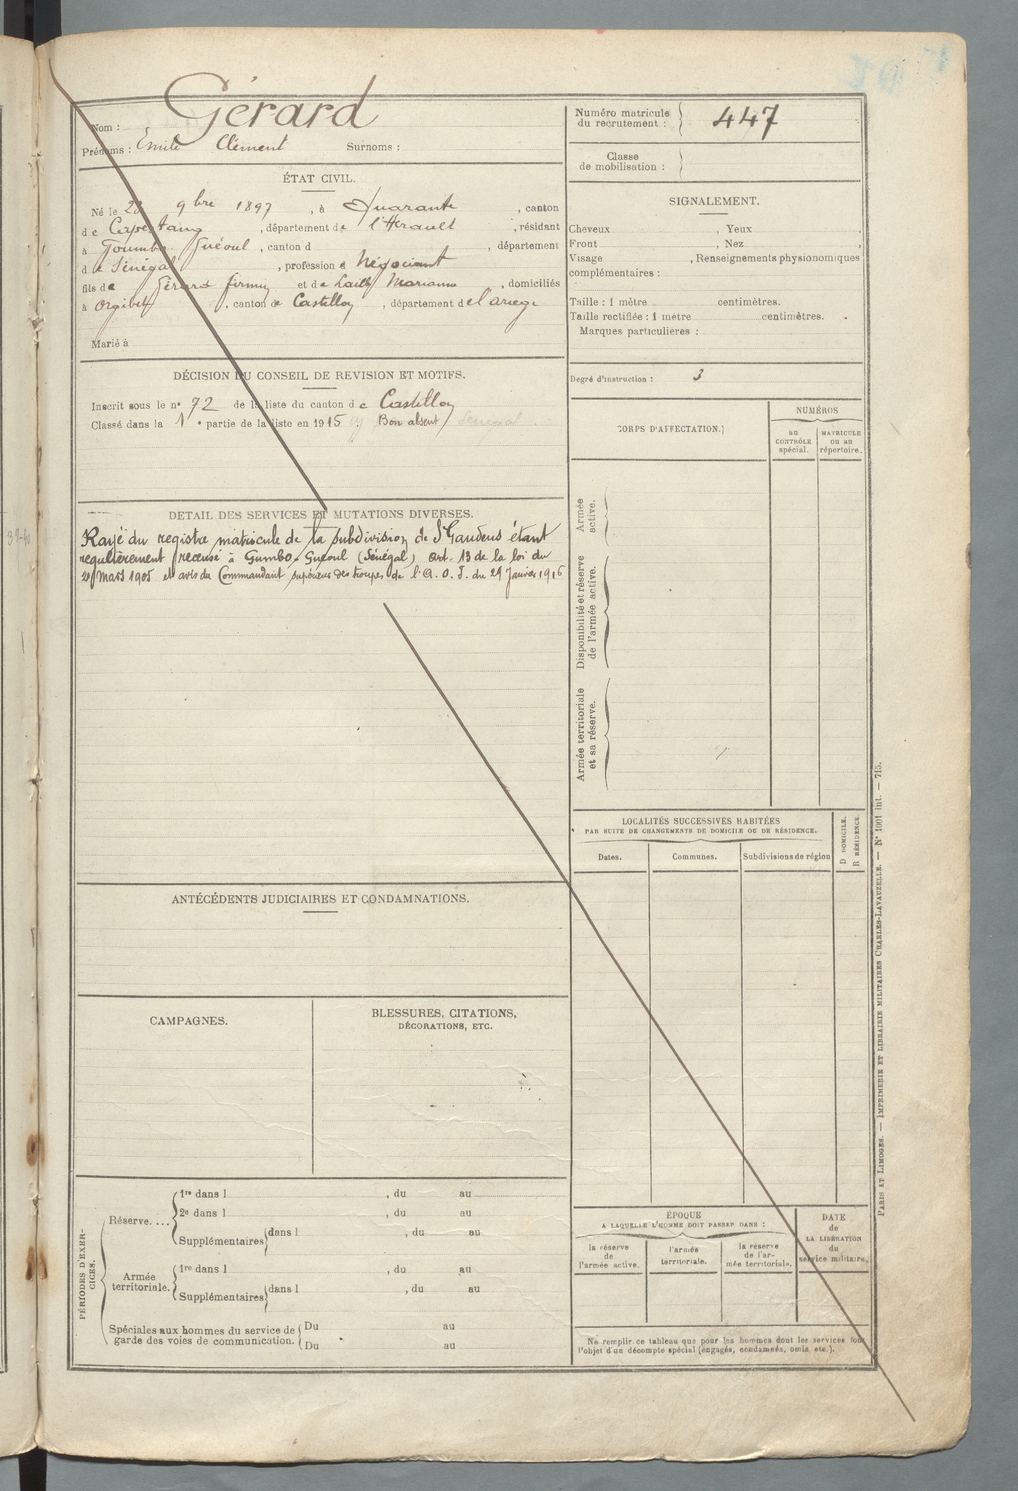 Nom : Gérard
Prénoms : Emile Clément Surnoms :
ÉTAT CIVIL.
Né le 28 9bre 1897, à Quarante, canton
de Capestang, département de l'Herault, résidant
à Goumbo Guéoul, canton d , département
de Sénégal, profession d Négociant
fils de Gérard Firmin et de Marianne, domiciliés
à Orgibet, canton de Castillon, département de l'ariege
Marié à
DÉCISION DU CONSEIL DE REVISION ET MOTIFS.
Inscrit sous le n° 72 de la liste du canton de Castillon
Classé dans la 1e partie de la liste en 1915 Bon absent Sénégal
DETAIL DES SERVICES ET MUTATIONS DIVERSES.
Rayé du registre matricule de la subdivision de St Gaudens étant
regulièrement recensé à Gumbo-Guéoul (Sénégal) art. 13 de la loi du
21 Mars 1905 et avis du Commandant supérieur des troupes de l'A. O. F. du 29 Janvier 1916
ANTÉCÉDENTS JUDICIAIRES ET CONDAMNATIONS.
CAMPAGNES.
BLESSURES, CITATIONS,
DÉCORATIONS, ETC.
PÉRIODES D'EXER-
CICES.
Réserve....
1re dans l , du au
2e dans l , du au
Supplémentaires dans l , du au
Armée
territoriale.
1re dans l , du au
Supplémentaires dans l , du au
Spéciales aux hommes du service de
garde des voies de communication.
Du au
Du au
Numéro matricule
du recrutement : 447
Classe
de mobilisation :
SIGNALEMENT.
Cheveux , Yeux ,
Front , Nez
Visage , Renseignements physionomiques
complémentaires :
Taille : 1 mètre centimètres.
Taille rectifiée : 1 mètre centimètres.
Marques particulières :
Degré d'instruction : 3
CORPS D'AFFECTATION.
NUMÉROS
au
CONTRÔLE
spécial.
MATRICULE
ou au
répertoire.
Armée
active.
Disponibilité et réserve
de l'armée active.
Armée territoriale
et sa réserve.
LOCALITÉS SUCCESSIVES HABITÉES
PAR SUITE DE CHANGEMENTS DE DOMICILE OU DE RÉSIDENCE.
Dates.
Communes.
Subdivisions de région
D DOMICILE.
R RÉSIDENCE.
ÉPOQUE
A LAQUELLE L'HOMME DOIT PASSER DANS :
la réserve
de
l'armée active.
l'armée
territoriale.
la réserve
de l'ar-
mée territoriale.
DATE
de
LA LIBÉRATION
du
service militaire.
Ne remplir ce tableau que pour les hommes dont les services font
l'objet d'un décompte spécial (engagés, condamnés, omis, etc.).
PARIS ET LIMOGES. — IMPRIMERIE ET LIBRAIRIE MILITAIRES CHARLES-LAVAUZELLE. — N° 1001 int. — 715.